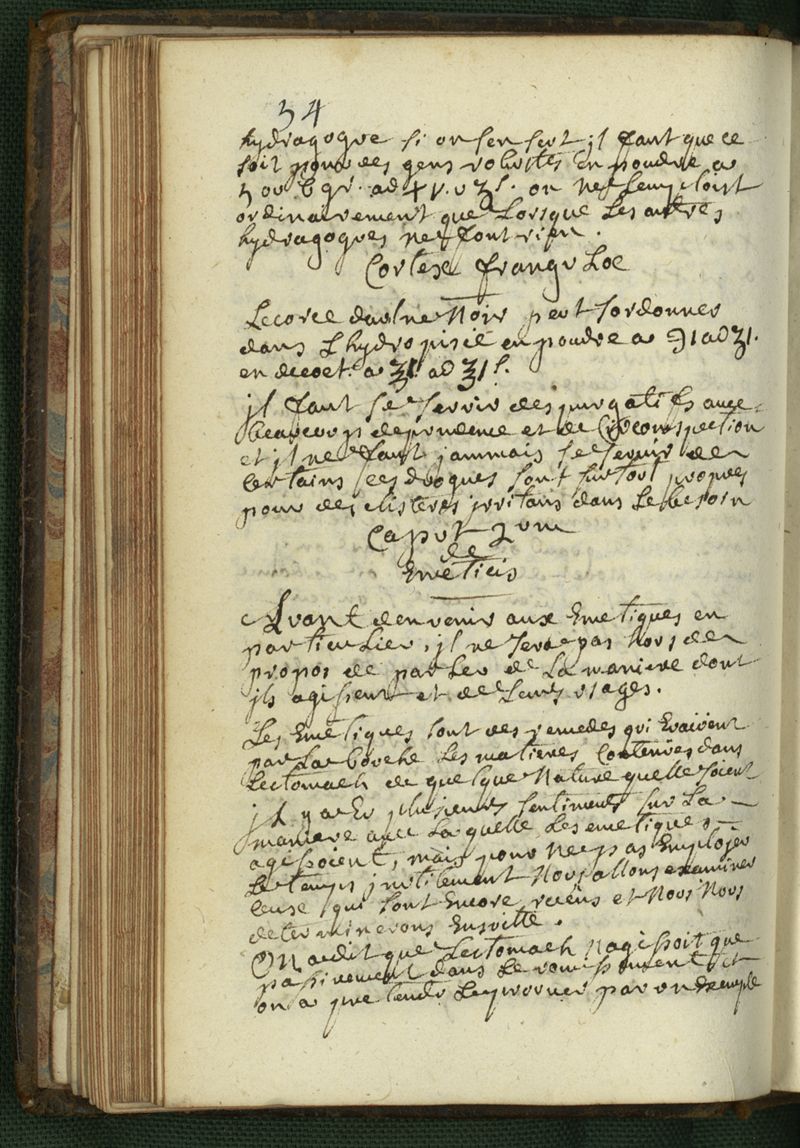 34
hydragogve si on sen sert jl faut que ce
soit pour des gens robustes en poudre a
5 ov 6 gr. ad on ne Lemploist
ordinairement que Lorsque Les autres
hydragogves ne font rien.
Cortex frangvLoe
Lecorce daulne Noir peut sordonner
dans Lhydropisie en poudre a ℈1 ad ʒ1.
en decoct. a ad
jl faut se servir des purgatifs avec
beaucoup deprudence et de Circonspection
et jl ne faut jammais se servir de
certains ces drogues sont surtout propres
pour des clisteres jrritans dans Le besoin
Capvt 2um
de
Emeticis
Avant denvenir aux Emetiques en
particuLier, jl ne sera pas hors de
propos de parLer de La maniere dont
jls agissent et de Leurs vsages.
Les Emetiques sont des remedes qvi Evaivent
par La bovche Les matieres Contenves dans
Lestomach de quelque Nature quelle soient
jL y a Ev plusieurs sentiments sur La
maniere avec La quelle Les emetiques
agissoient, mais pour Ne pas Employer
Le temps jnvtilement Novs allons examiner
ceux qui sont Encore reciens et Novs Novs
determinerons Ensvitte.
On a dit que Lestomach Nagissoit que
passivement dans Le vomissement et
on a pretendu Leprovver par vn Exemple